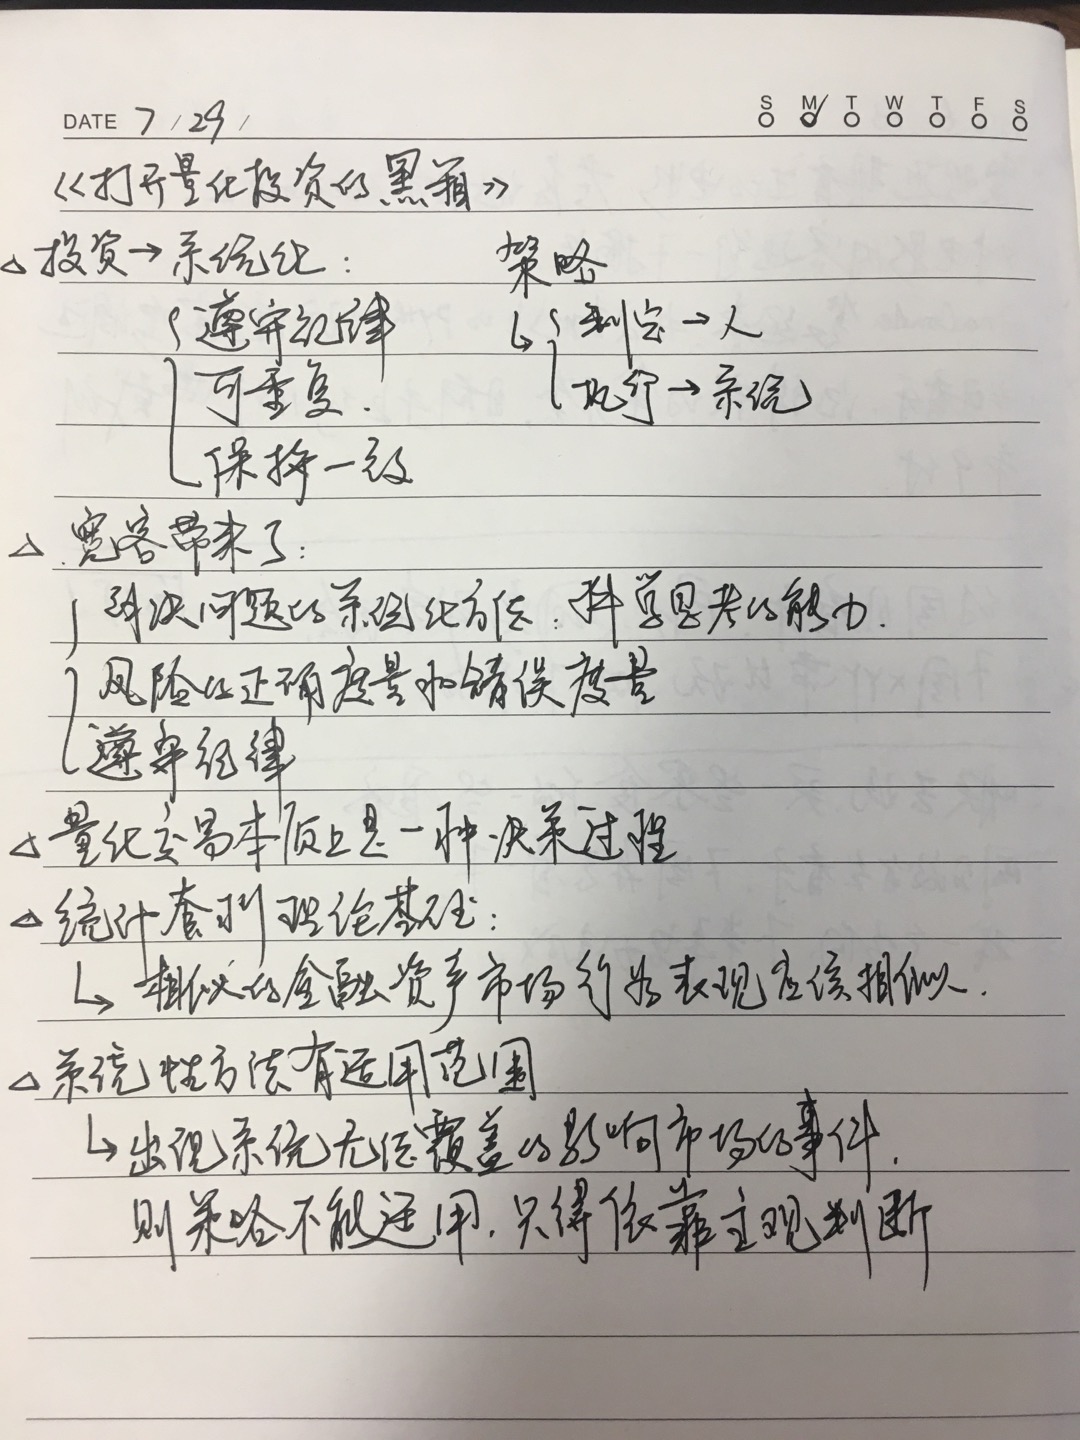 DATE 7 / 29 /
S M T W T F S
《打开量化投资的黑箱》
△ 投资→系统化： 策略
遵守纪律 ↳ 制定→人
可重复. 执行→系统
保持一致
△ 宽客带来了：
解决问题的系统化方法：科学思考的能力.
风险的正确度量和错误度量
遵守纪律
△ 量化交易本质上是一种决策过程
△ 统计套利理论基础：
↳ 相似的金融资产市场行为表现应该相似.
△ 系统性方法有适用范围
↳ 出现系统无法覆盖的影响市场的事件.
则策略不能适用.只得依靠主观判断